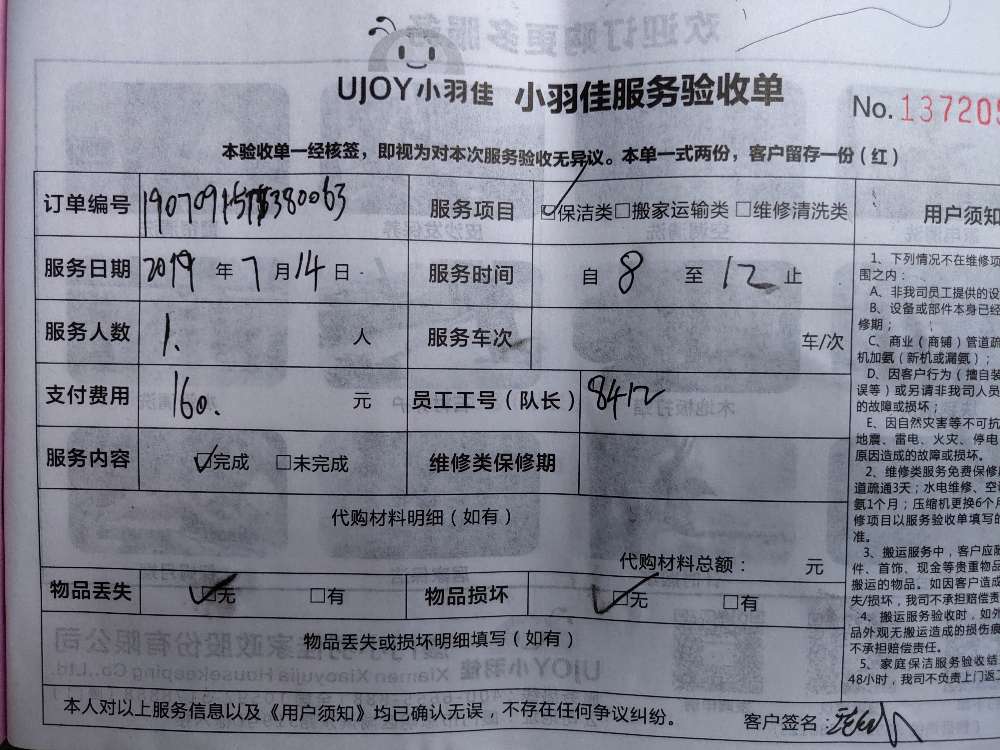 UJOY小羽佳 小羽佳服务验收单
No. 137209
本验收单一经核签，即视为对本次服务验收无异议。本单一式两份，客户留存一份（红）
订单编号 服务项目 保洁类 □搬家运输类 □维修清洗类
服务日期 2019 年 7 月 14 日 服务时间 自 8 至 12 止
服务人数 1. 人 服务车次 车/次
支付费用 160. 元 员工工号（队长） 8412
服务内容 完成 □未完成 维修类保修期
代购材料明细（如有）
代购材料总额： 元
物品丢失 无 □有 物品损坏 无 □有
物品丢失或损坏明细填写（如有）
本人对以上服务信息以及《用户须知》均已确认无误，不存在任何争议纠纷。 客户签名：
用户须知
1、下列情况不在维修项
围之内：
A、非我司员工提供的设
B、设备或部件本身已经
修期；
C、商业（商铺）管道疏
机加氨（新机或漏氨）；
D、因客户行为（擅自装
误等）或另请非我司人员
的故障或损坏；
E、因自然灾害等不可抗
地震、雷电、火灾、停电
原因造成的故障或损坏。
2、维修类服务免费保修
道疏通3天；水电维修、空
氨1个月；压缩机更换6个月
修项目以服务验收单填写的
准。
3、搬运服务中，客户应
件、首饰、现金等贵重物品
搬运的物品。如因客户造成
失/损坏，我司不承担赔偿责
4、搬运服务验收时，如外
品外观无搬运造成的损伤痕
不承担赔偿责任。
5、家庭保洁服务验收结
48小时，我司不负责上门返工